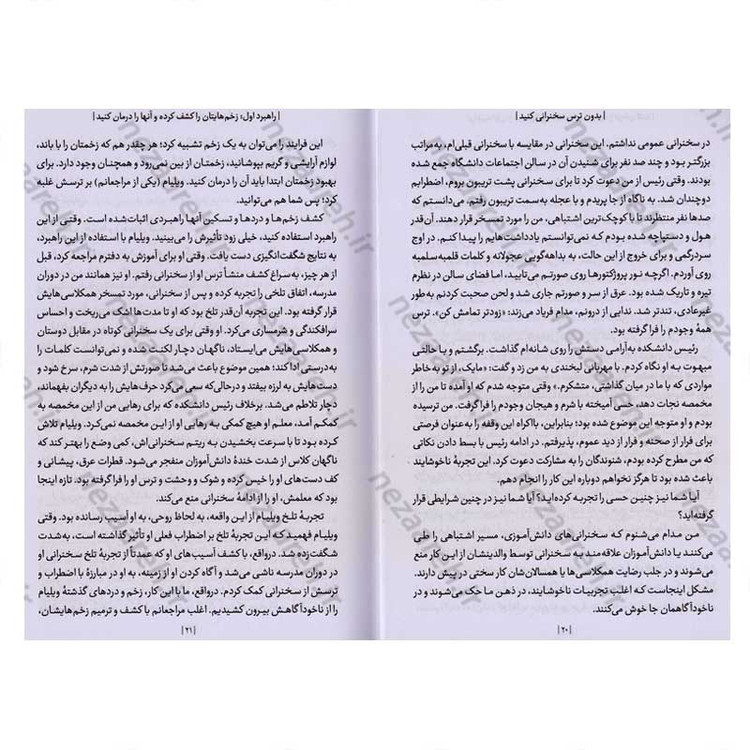 | بدون ترس سخنرانی کنید |
در سخنرانی عمومی نداشتم. این سخنرانی در مقایسه با سخنرانی قبلی‌ام، به‌مراتب
بزرگتر بود و چند صد نفر برای شنیدن آن در سالن اجتماعات دانشگاه جمع شده
بودند. وقتی رئیس از من دعوت کرد تا برای سخنرانی پشت تریبون بروم، اضطرابم
دوچندان شد. به ناگاه از جا پریدم و با عجله به‌سمت تریبون رفتم. می‌دانستم که
صدها نفر منتظرند تا با کوچک‌ترین اشتباهی، من را مورد تمسخر قرار دهند. آن‌قدر
هول و دستپاچه شده بودم کـه نمی‌توانستم یادداشت‌هایم را پیدا کنـم. در اوج
سردرگمی و برای خروج از این حالت، به بداهه‌گویی عجولانه و کلمات قلمبه‌سلمبه
روی آوردم. اگرچـه نور پروژکتورهـا روی صورتـم می‌تابید، امـا فضای سالن در نظرم
تیره و تاریک شده بود. عرق از سر و صورتم جاری شد و لحن صحبت کردنم به‌طور
غیرعادی، تندتر شد. ندایی از درونم، مدام فریاد می‌زند: «زودتر تمامش کن». ترس
همهٔ وجودم را فرا گرفته بود.
رئیس دانشکده به‌آرامی دستش را روی شانه‌ام گذاشت. برگشتم و با حالتی
مبهوت به او نگاه کردم. با مهربانی لبخندی به من زد و گفت: «مایک، از تو به خاطر
مواردی که با ما در میان گذاشتی، متشکرم.» وقتی متوجه شدم که او آمده تا من را از
مخمصه نجات دهد، حسی آمیخته با شرم و هیجان وجودم را فرا گرفت. من ترسیده
بودم و او متوجه این موضوع شده بود؛ بنابراین، بااکراه این وقفه را به‌عنوان فرصتی
برای فرار از صحنه و فرار از دید عموم، پذیرفتم. در ادامه رئیس با بسط دادن نکاتی
که من مطرح کرده بودم، شنوندگان را به مشارکت دعوت کرد. این تجربهٔ ناخوشایند
باعث شده بود تا هرگز نخواهم دوباره این کار را انجام دهم.
آیا شما نیز چنین حسی را تجربه کرده‌اید؟ آیا شما نیز در چنین شرایطی قرار
گرفته‌اید؟
مـن مدام می‌شنوم کـه سخنرانی‌های دانش‌آموزی، مسیـر اشتباهی را طـی
می‌کنند یـا دانش‌آموزان علاقه‌مند به سخنرانی توسط والدینشان از این کار منع
می‌شوند و در جلب رضایت همکلاسی‌ها یا همسالان‌شان کار سختی در پیش دارند.
مشکل اینجاسـت که اغلب تجربیـات ناخوشایند، در ذهـن مـا حک می‌شوند و در
ناخودآگاهمان جا خوش می‌کنند.
| ۲۰ |
| راهبرد اول: زخم‌هایتان را کشف کرده و آنها را درمان کنید |
این فرایند را می‌توان به یک زخم تشبیه کرد؛ هر چقدر هم که زخمتان را با باند،
لوازم آرایشی و گریم بپوشانید، زخمتـان از بین نمی‌رود و همچنان وجود دارد. برای
بهبود زخمتان ابتدا باید آن را درمان کنید. ویلیام (یکی از مراجعانم) بر ترسش غلبه
کرد؛ پس شما هم می‌توانید.
کشف زخم‌ها و دردها و تسکین آنها راهبردی اثبات‌شده است. وقتی از این
راهبرد استفاده کنید، خیلی زود تأثیرش را می‌بینید. ویلیام با استفاده از این راهبرد،
به نتایج شگفت‌انگیزی دست یافت. وقتی او برای آموزش به دفترم مراجعه کرد، قبل
از هر چیز، به‌سراغ کشف منشأ ترس او از سخنرانی رفتم. او نیز همانند من در دوران
مدرسه، اتفاق تلخی را تجربه کرده و پس از سخنرانی، مورد تمسخر همکلاسی‌هایش
قرار گرفته بود. این تجربه آن‌قدر تلخ بود که او تا مدت‌ها اشک می‌ریخت و احساس
سرافکندگی و شرمساری می‌کرد. او وقتی برای یک سخنرانی کوتاه در مقابل دوستان
و همکلاسی‌هایش می‌ایستاد، ناگهان دچار لکنت شده و نمی‌توانست کلمات را
به‌درستی ادا کند؛ همین موضوع باعث می‌شد تا صورتش از شدت شرم، سرخ شود و
دست‌هایش به لرزه بیفتد و درحالی‌که سعی می‌کرد حرف‌هایش را به دیگران بفهماند،
دچار تلاطم می‌شد. برخلاف رئیس دانشکده که برای رهایی من از این مخمصه به
کمکـم آمـد، معلـم او هیچ کمکی بـه رهایـی او از این مخمصـه نمی‌کرد. ویلیـام تلاش
کرده بـود تا با سرعت بخشیـدن به ریتـم سخنرانی‌اش، کمی وضع را بهتر کند که
ناگهان کلاس از شدت خندهٔ دانش‌آموزان منفجر می‌شود. قطرات عرق، پیشانی و
کف دست‌های او را خیس کرده و شوک و وحشت و ترس او را فرا گرفت. تازه اینجا
بود که معلمش، او را از ادامهٔ سخنرانی منع می‌کند.
تجربـهٔ تلخ ویلیـام از ایـن واقعـه، به لحاظ روحی، به او آسیب رسانده بود. وقتی
ویلیام فهمیـد که این تجربهٔ تلخ بر اضطراب فعلی او تأثیر گذاشته است، به‌شدت
شگفت‌زده شد. درواقع، با کشف آسیب‌های او که عمدتاً از تجربهٔ تلخ سخنرانی او
در دوران مدرسه ناشی می‌شد و آگاه کردن او از این زمینه، به او در مبارزهٔ با اضطراب و
ترسش از سخنرانی کمک کردم. درواقع، ما با این کار، زخم و دردهای گذشتهٔ ویلیام
را از ناخودآگاهش بیرون کشیدیم. اغلب مراجعانم با کشف و ترمیم زخم‌هایشان،
| ۲۱ |
nezaareh.ir